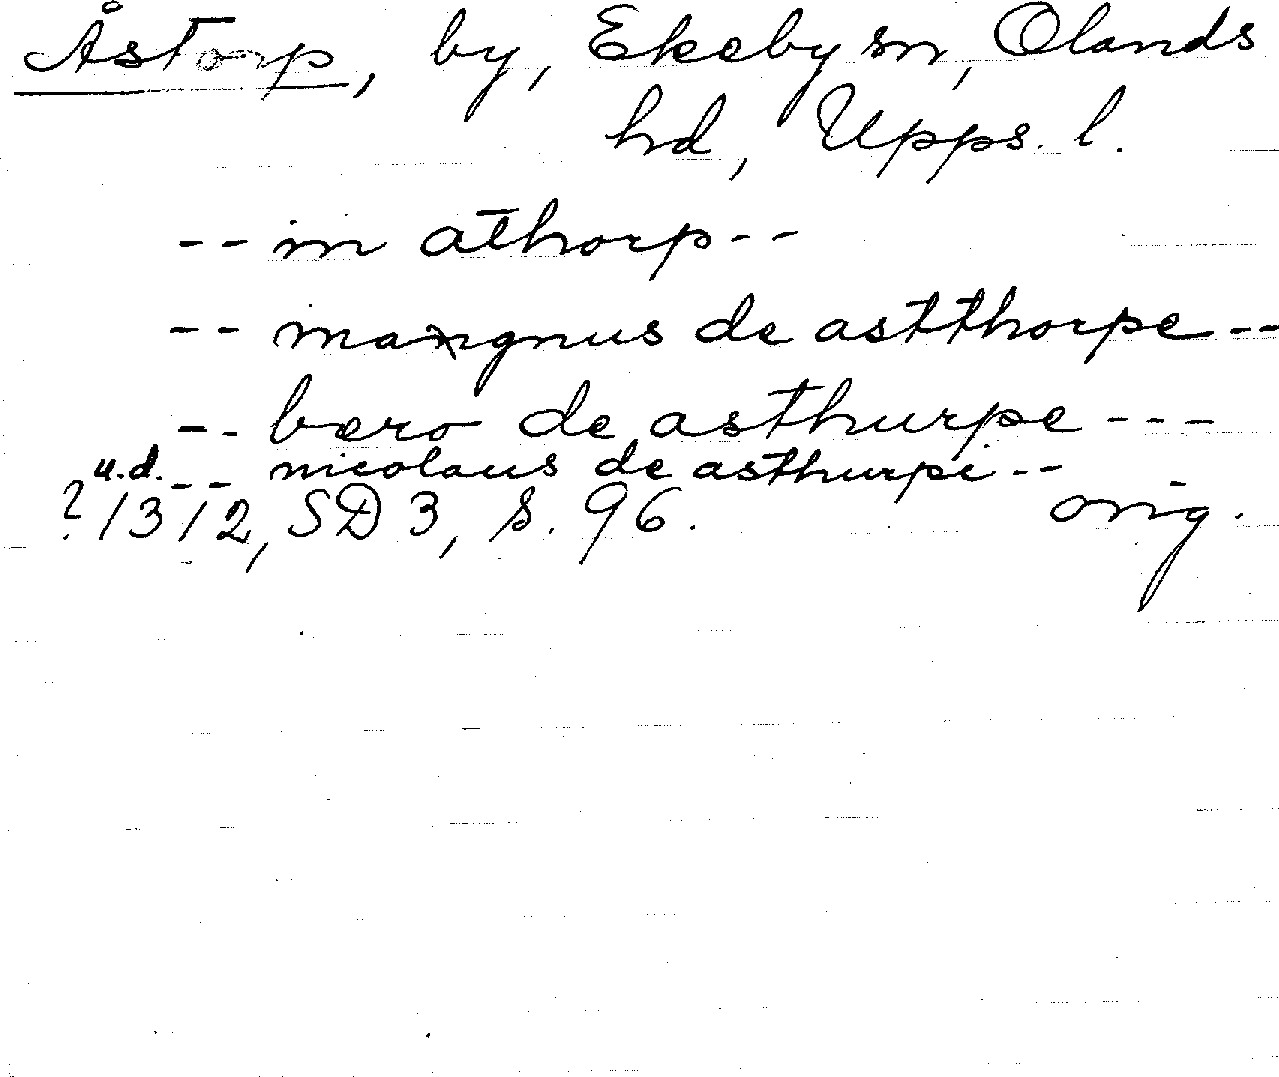 Åstorp, by, Ekeby sn, Olands
hd, Upps. l.
-- in athorp --
-- mangnus de astthorpe --
-- bero de asthurpe ---
u.d. -- nicolaus de asthurpi --
? 1312, SD 3, s. 96. orig.